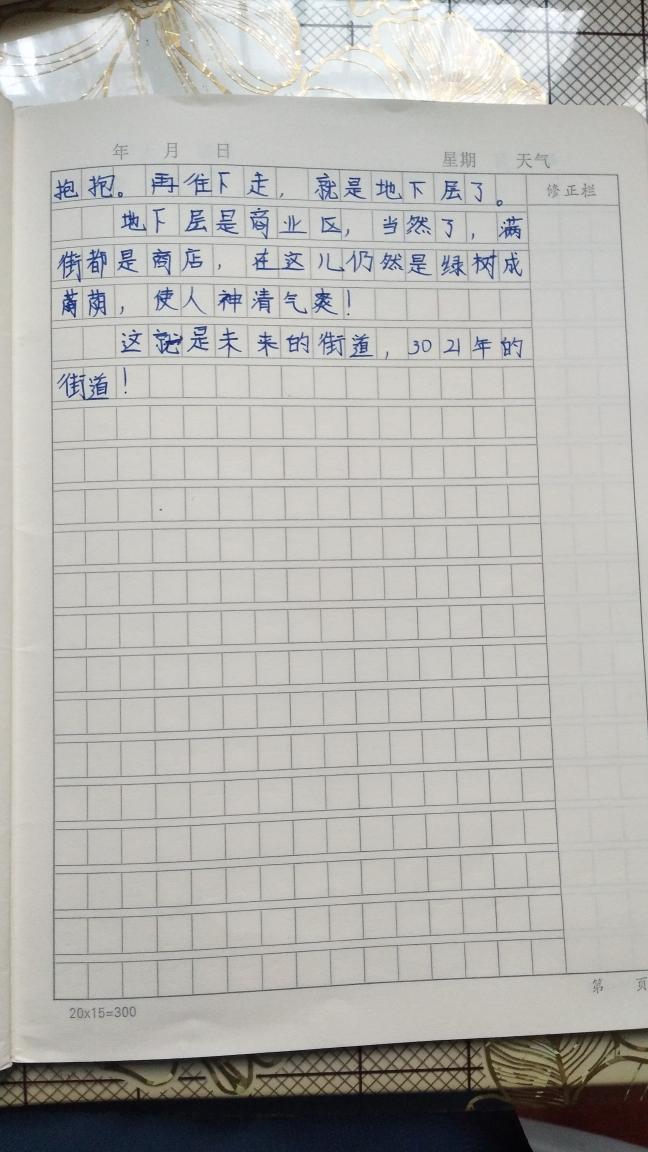 年 月 日
星期 天气
抱抱。再往下走，就是地下层了。
修正栏
地下层是商业区，当然了，满
街都是商店，在这儿仍然是绿树成
荫，使人神清气爽！
这就是未来的街道，3021年的
街道！
第 页
20x15=300